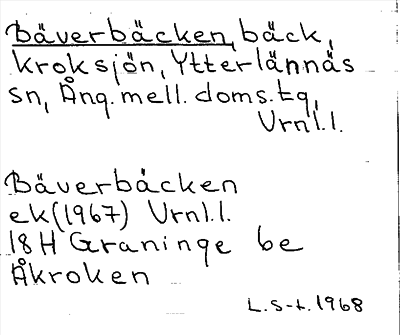 Bäverbäcken, bäck,
Kroksjön, Ytterlännäs
sn, Ång. mell. doms. tg,
Vrnl.l.
Bäverbäcken
ek(1967) Vrnl.l.
18H Graninge be
Åkroken
L.S-t. 1968